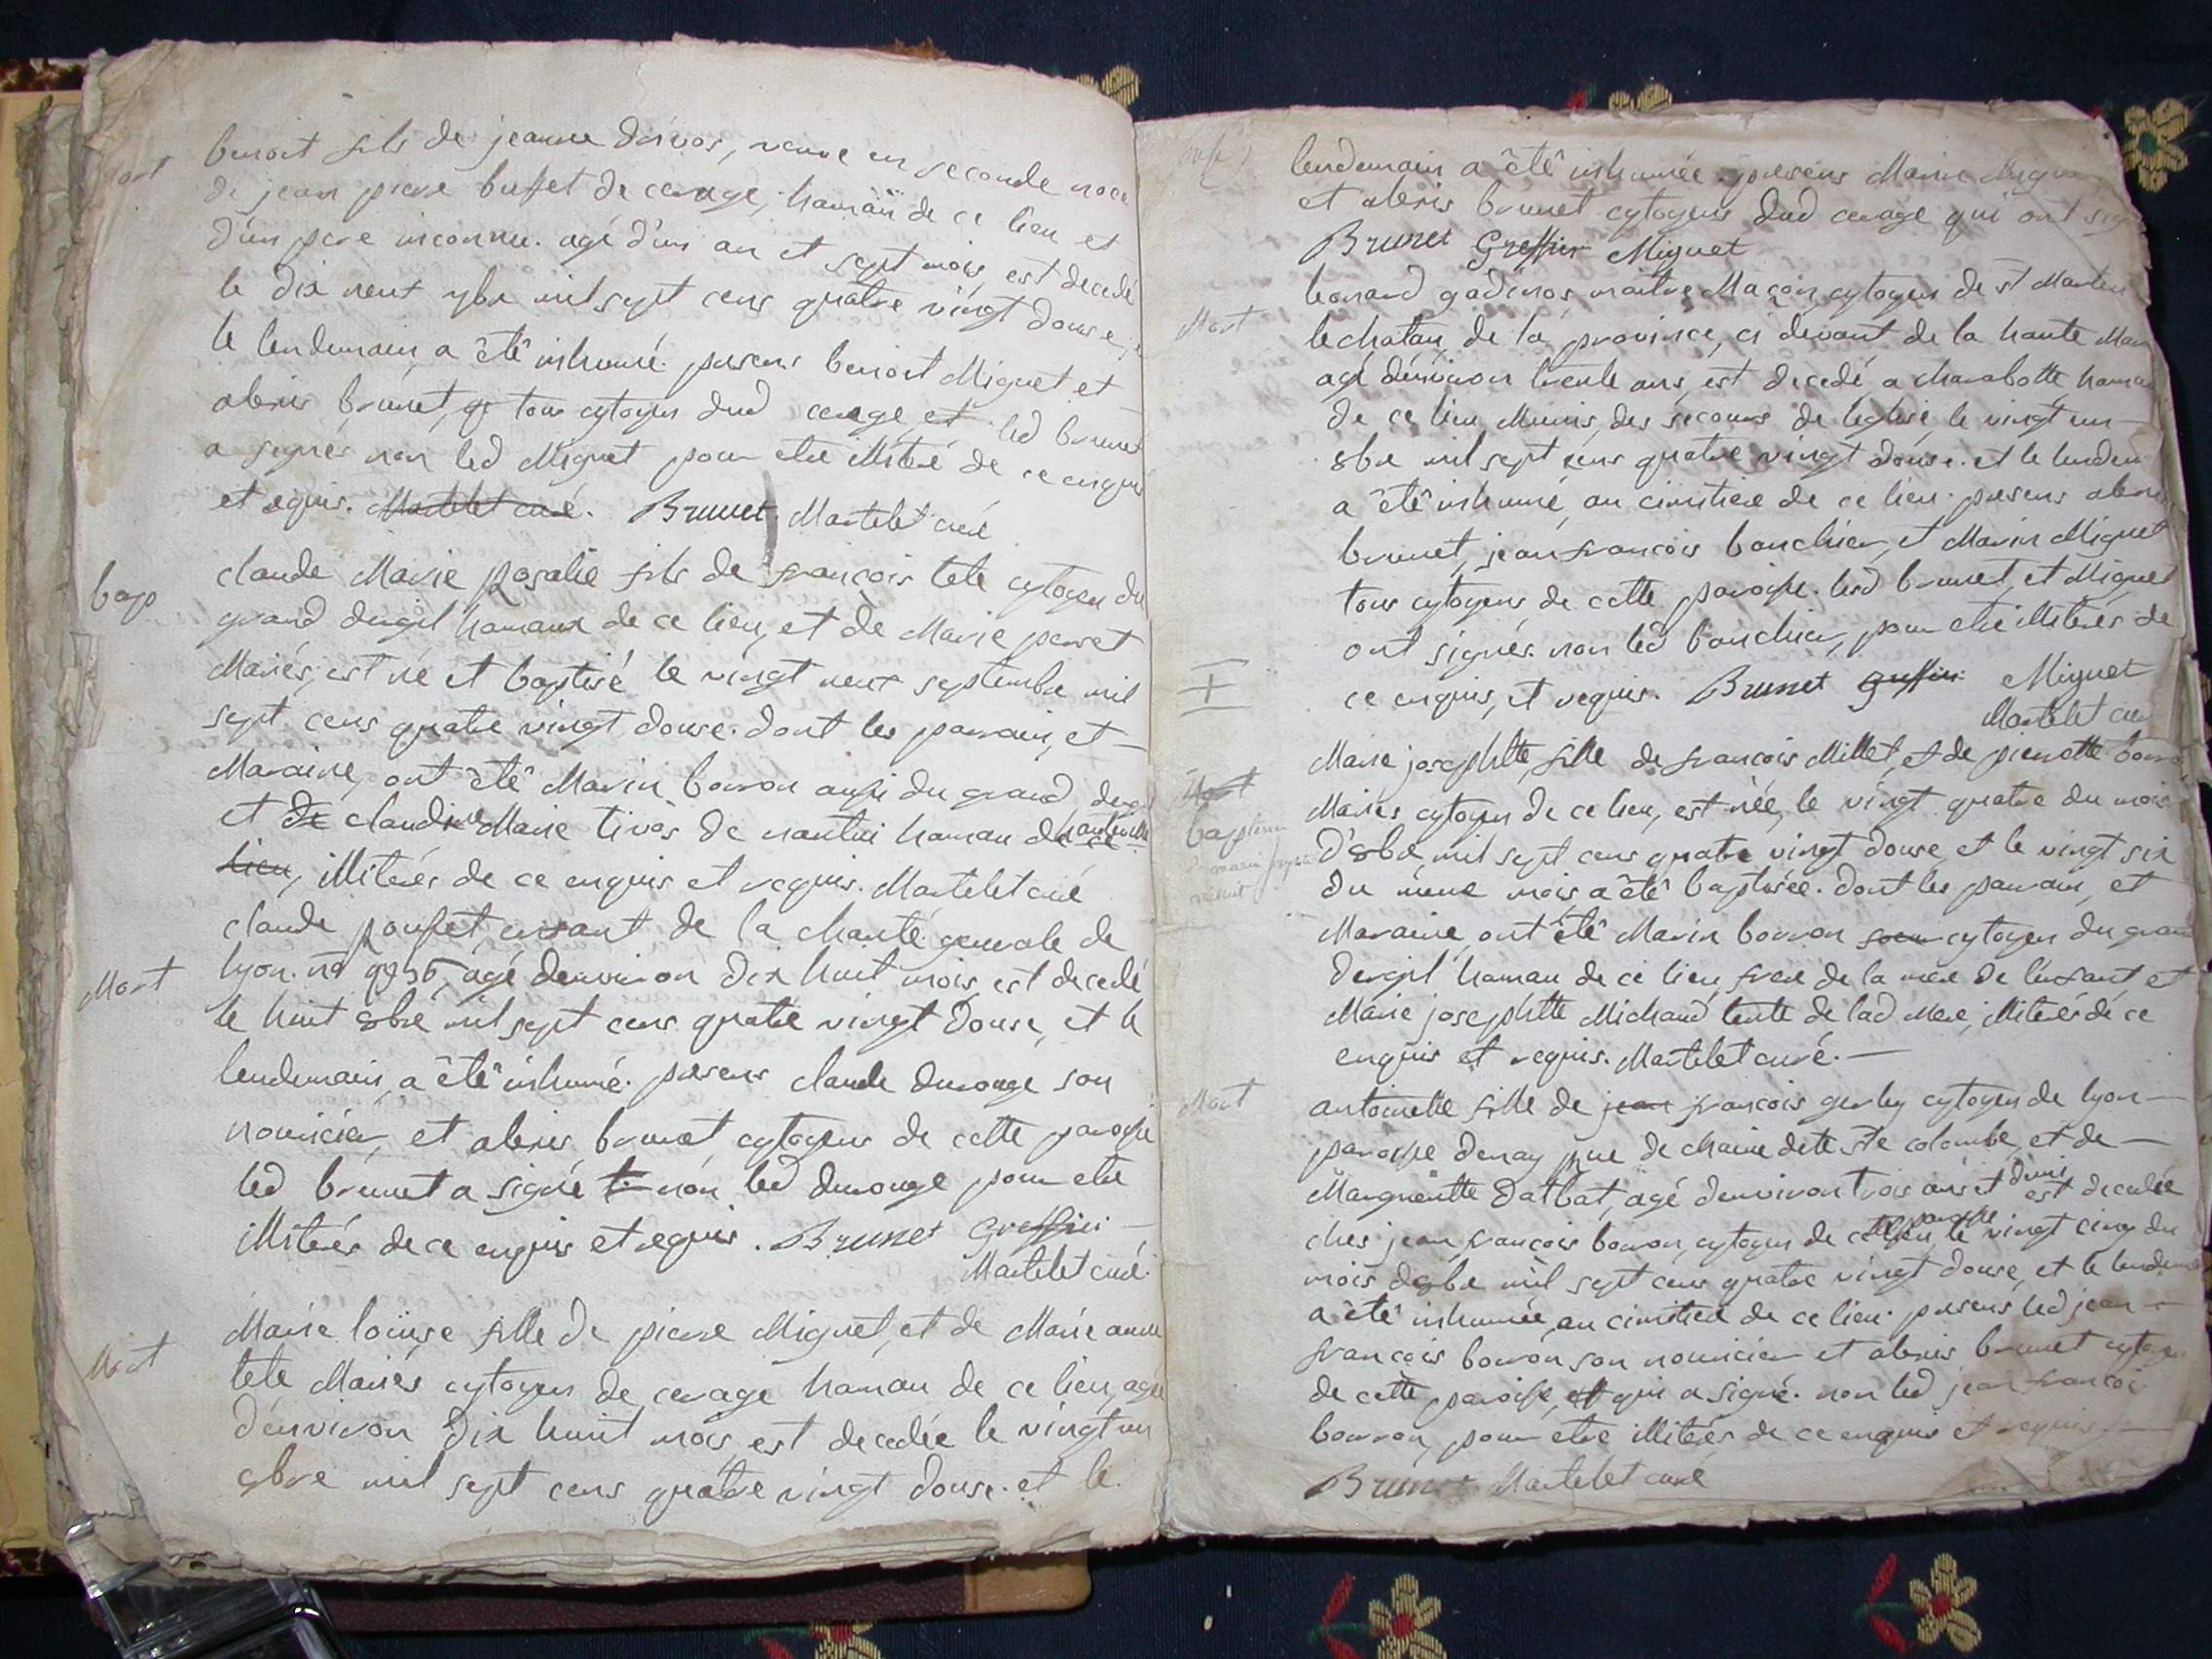 Mort
benoit fils de jeanne dorvos, veuve en seconde noce
de jean piere buffet de cerage, hamau de ce lieu et
d'un pere inconnu. agé d'un an et sept mois, est decedé
le dix neuf 7bre mil sept cens quatre vingt douse, et
le lendemain a êtê inhumé. presens benoit Miguet et
alexis brunet, tous cytoyens dud cerage et led brunet
a signés non led Miguet pour etre illiteré de ce enquis
et requis. Martelet curé. Brunet Martelet curé
bap
claude Marie rosalie fils de françois tete cytoyen du
grand dergil hamaux de ce lieu, et de Marie perret
Mariés, est né et baptisé le vingt neuf septembre mil
sept cens quatre vingt douse. dont les parrain, et
Maraine, ont êtê Marin borron aussi du grand dergil
et de claudine Marie tivos de nantui hamau de hauteville ce
lieu, illiterés de ce enquis et requis. Martelet curé
Mort
claude pousset, enfant de la charité generale de
lyon. n° 9936, agé denviron dix huit mois, est decedé
le huit 8bre mil sept cens quatre vingt douse, et le
lendemain, a êtê inhumé. presens claude durouge son
nouricier, et alexis brunet, cytoyens de cette paroisse
led brunet a signé non led durouge pour etre
illiterés de ce enquis et requis. Brunet Greffier
Martelet curé.
Mort
Marie loüise fille de piere Miguet, et de Marie anne
tete Mariés cytoyens de cerage hamau de ce lieu, agée
d'environ dix huit mois, est decedée le vingt un
8bre mil sept cens quatre vingt douse. et le
lendemain a êtê inhumée. presens Marin Miguet
et alexis brunet cytoyens dud cerage qui ont sig
Brunet Greffier Miguet
Mort
leonard gadinos, maitre Maçon, cytoyen de st Martin
lechatau, de la province, ci devant de la haute Mar
agé d'environ trente ans, est decedé a charabotte, hamau
de ce lieu Munis des secours de leglise, le vingt un
8bre mil sept cens quatre vingt douse. et le lendem
a êtê inhumé, au cimitiere de ce lieu. presens alexis
brunet, jean françois bouchier, et Marin Miguet
tous cytoyens de cette paroisse. lesd brunet, et Miguet
ont signés. non led bouchier, pour etre illiterés de
ce enquis, et requis. Brunet greffier Miguet
Martelet cur
Mort
bapteme
Marie josephtte, fille de françois Millet, et de pierrette borron
Mariés cytoyen de ce lieu, est née, le vingt quatre du mois
d'8bre, mil sept cens quatre vingt douse, et le vingt six
du meme mois, a êtê baptisée. dont les parrain, et
Maraine, ont êtê Marin borron cytoyen du grand
dergil hamau de ce lieu, frere de la mere de l'enfant et
Marie josephtte Michaud tante de lad Mere, illiterés de ce
enquis et requis. Martelet curé.
Mort
antoinette fille de jean françois gerley cytoyen de lyon
paroisse denay rue de chaine dete ste colombe, et de
Marguerite dalbat, agé denviron trois ans et demi est decedée
ches jean françois borron, cytoyen de cette paroisse le vingt cinq du
mois d8bre mil sept cens quatre vingt douse, et le lendem
a êtê inhumée, au cimitiere de ce lieu. presens led jean
françois borron son nouricier et alexis brunet cytoyen
de cette paroisse, qui a signé. non led jean françois
borron, pour etre illiterés de ce enquis et requis
Brunet Martelet curé